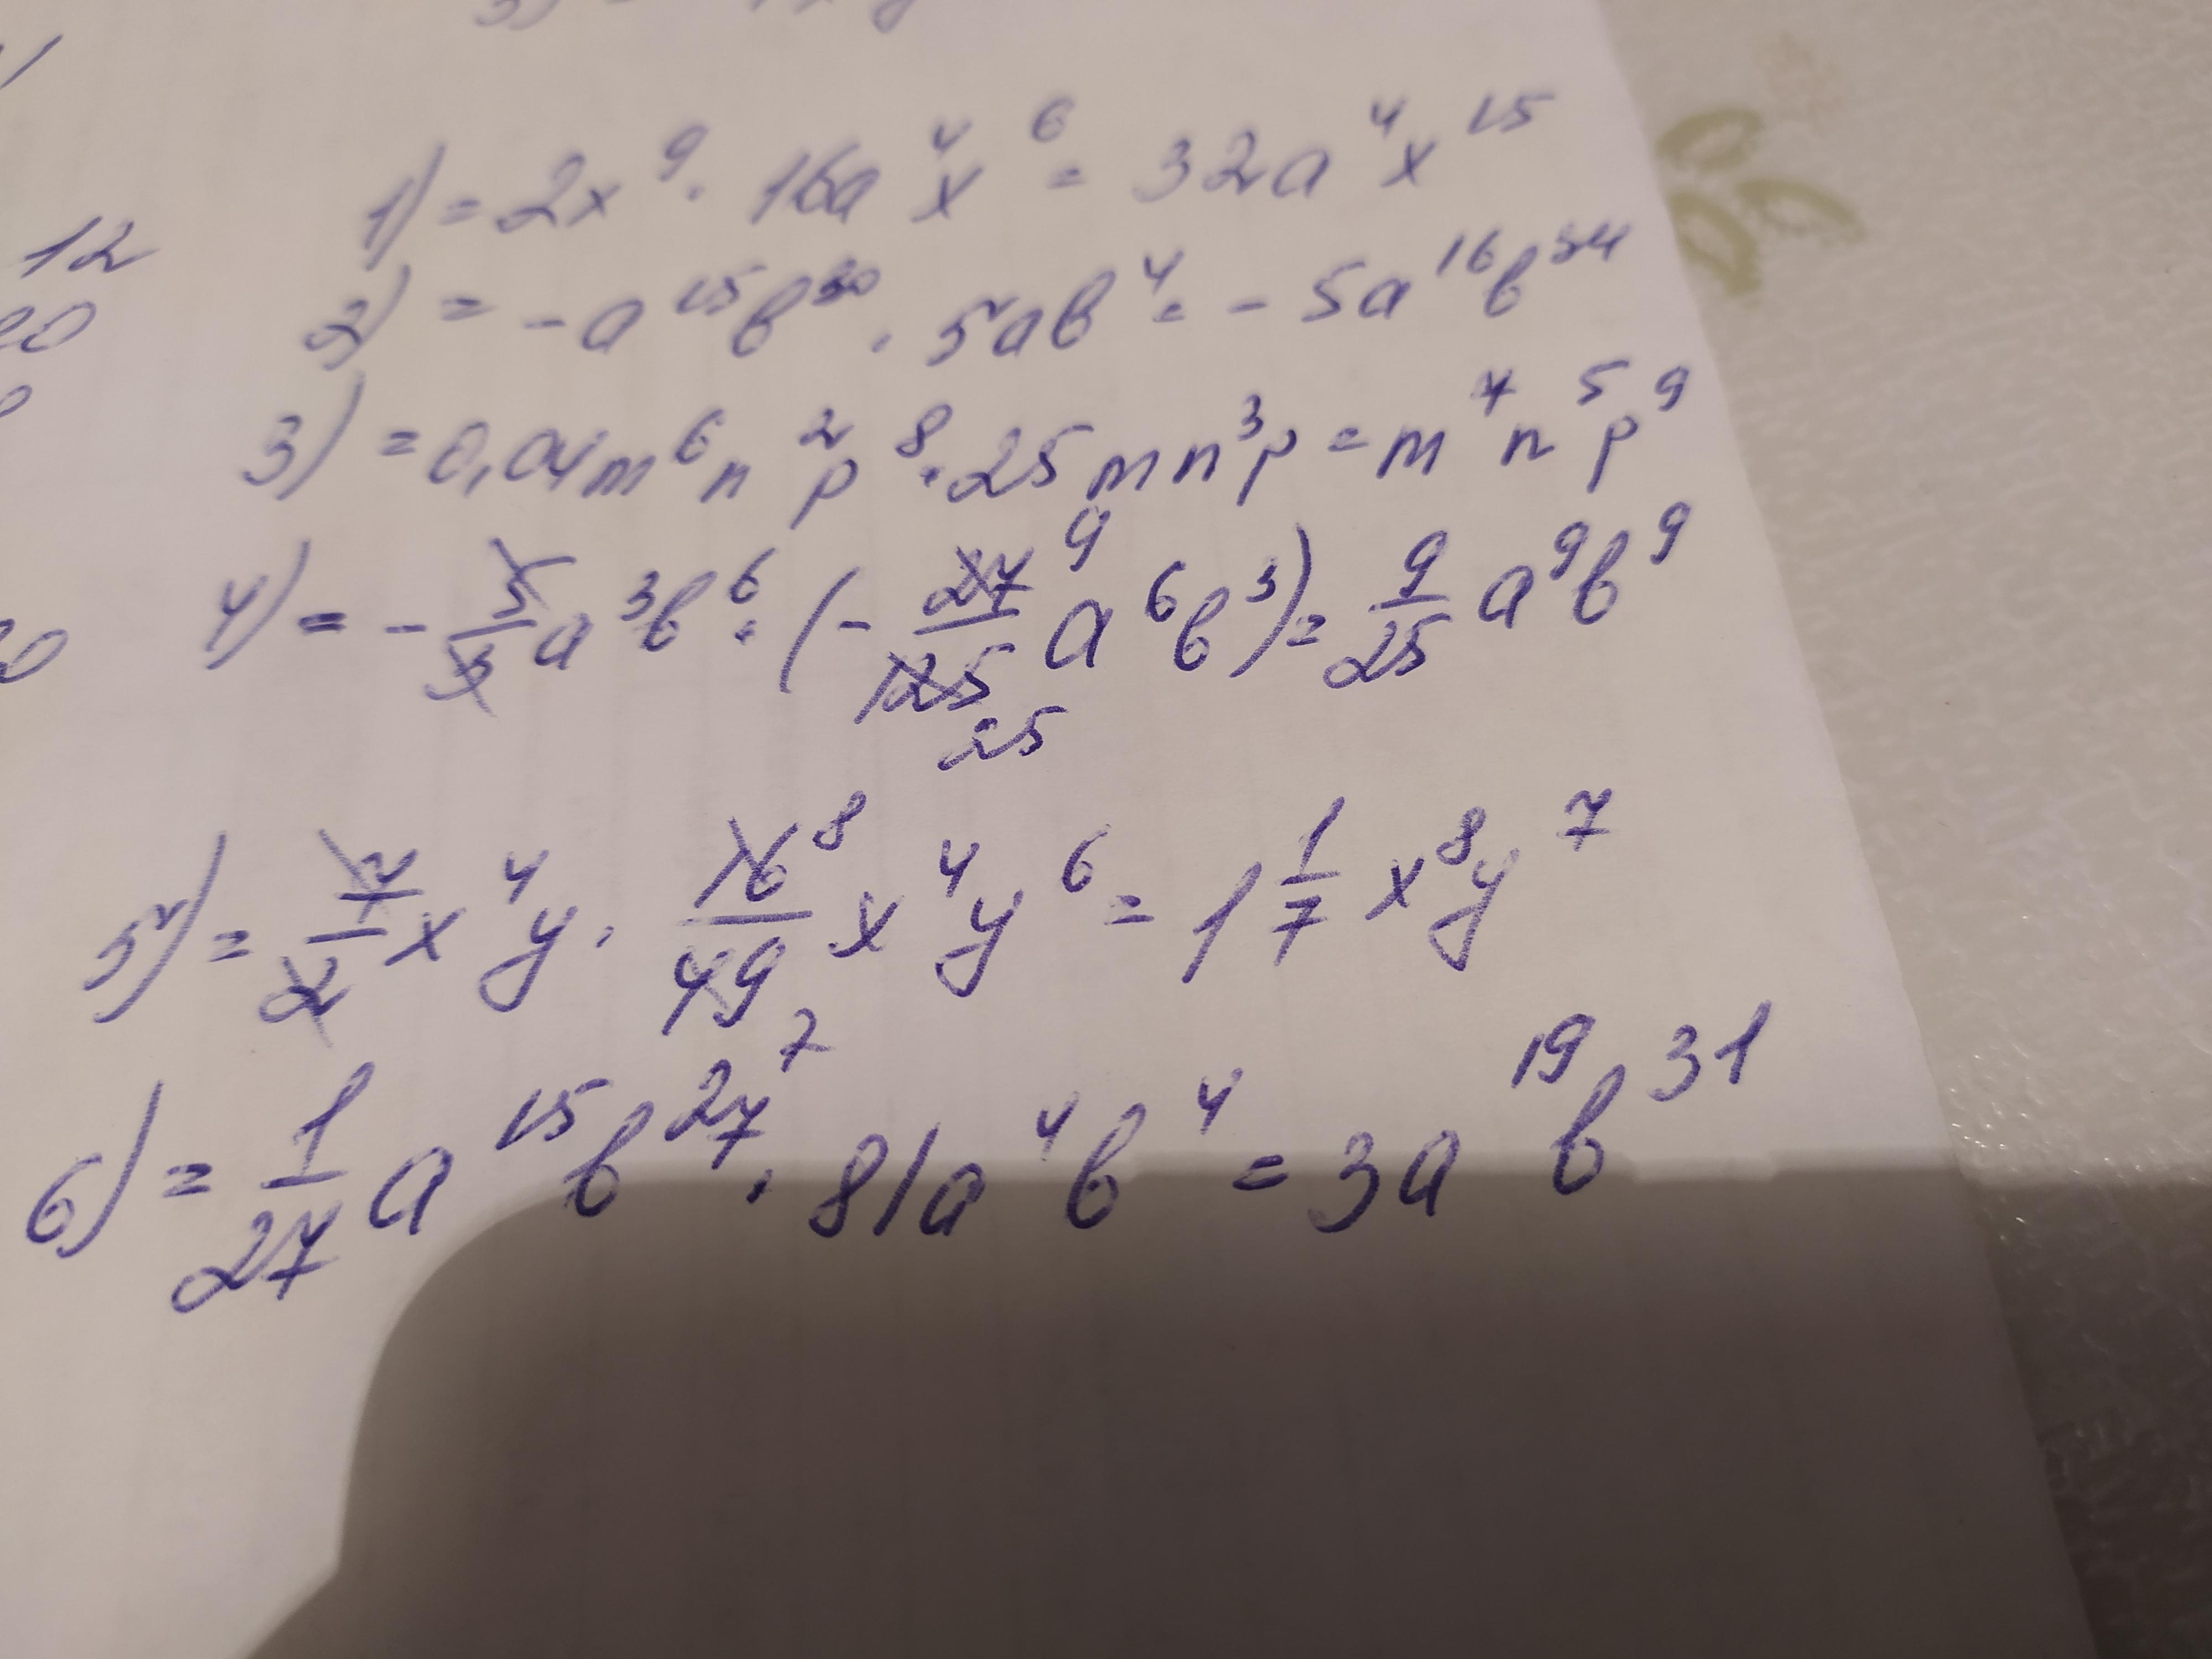 12
1) = 2x⁹ · 16a⁴x⁶ = 32a⁴x¹⁵
2) = -a¹⁵b³⁰ · 5ab⁴ = -5a¹⁶b³⁴
3) = 0,04m⁶n²p⁸ · 25mn³p = m⁷n⁵p⁹
4) = -5/3 a³b⁶ · (-27/125 a⁶b³) = 9/25 a⁹b⁹
9
25
5) = 7/2 x⁴y · 16/49 x⁴y⁶ = 1 1/7 x⁸y⁷
8
7
6) = 1/27 a¹⁵b²⁷ · 81a⁴b⁴ = 3a¹⁹b³¹